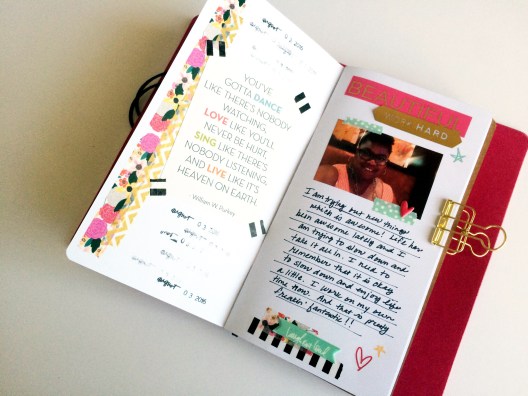 August 03 2016
YOU'VE
GOTTA DANCE
LIKE THERE'S NOBODY
WATCHING,
LOVE LIKE YOU'LL
NEVER BE HURT,
SING LIKE THERE'S
NOBODY LISTENING,
AND LIVE LIKE IT'S
HEAVEN ON EARTH.
William W. Purkey
August 03 2016
August 03 2016
BEAUTIFUL
WORK HARD
I am trying out new things
which is awesome. Life has
been awesome lately and I
am trying to slow down and
take it all in. I need to
remember that it is okay
to slow down and enjoy life
a little. I work on my own
time now. And that is pretty
freakin' fantastic!!